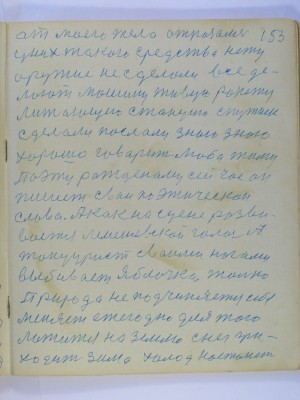 ат моего тело отрозами 153
у них такого средства нету
оружие не сделали все де-
лают машину живую ракету
литающую станцию спутник
сделали послали знаю знаю
хорошо говарят люба
Поэту рожденому сей час он
пишет сваи поэтический
слова. А как на сцене розви-
вается Лемешевской голос А
танцурист сваими ногами
выбивает Яблачка, толко
Природа не подчиняется себя
меняет ежегодно для того
ложится на землю снег при-
ходит зима холод настанет